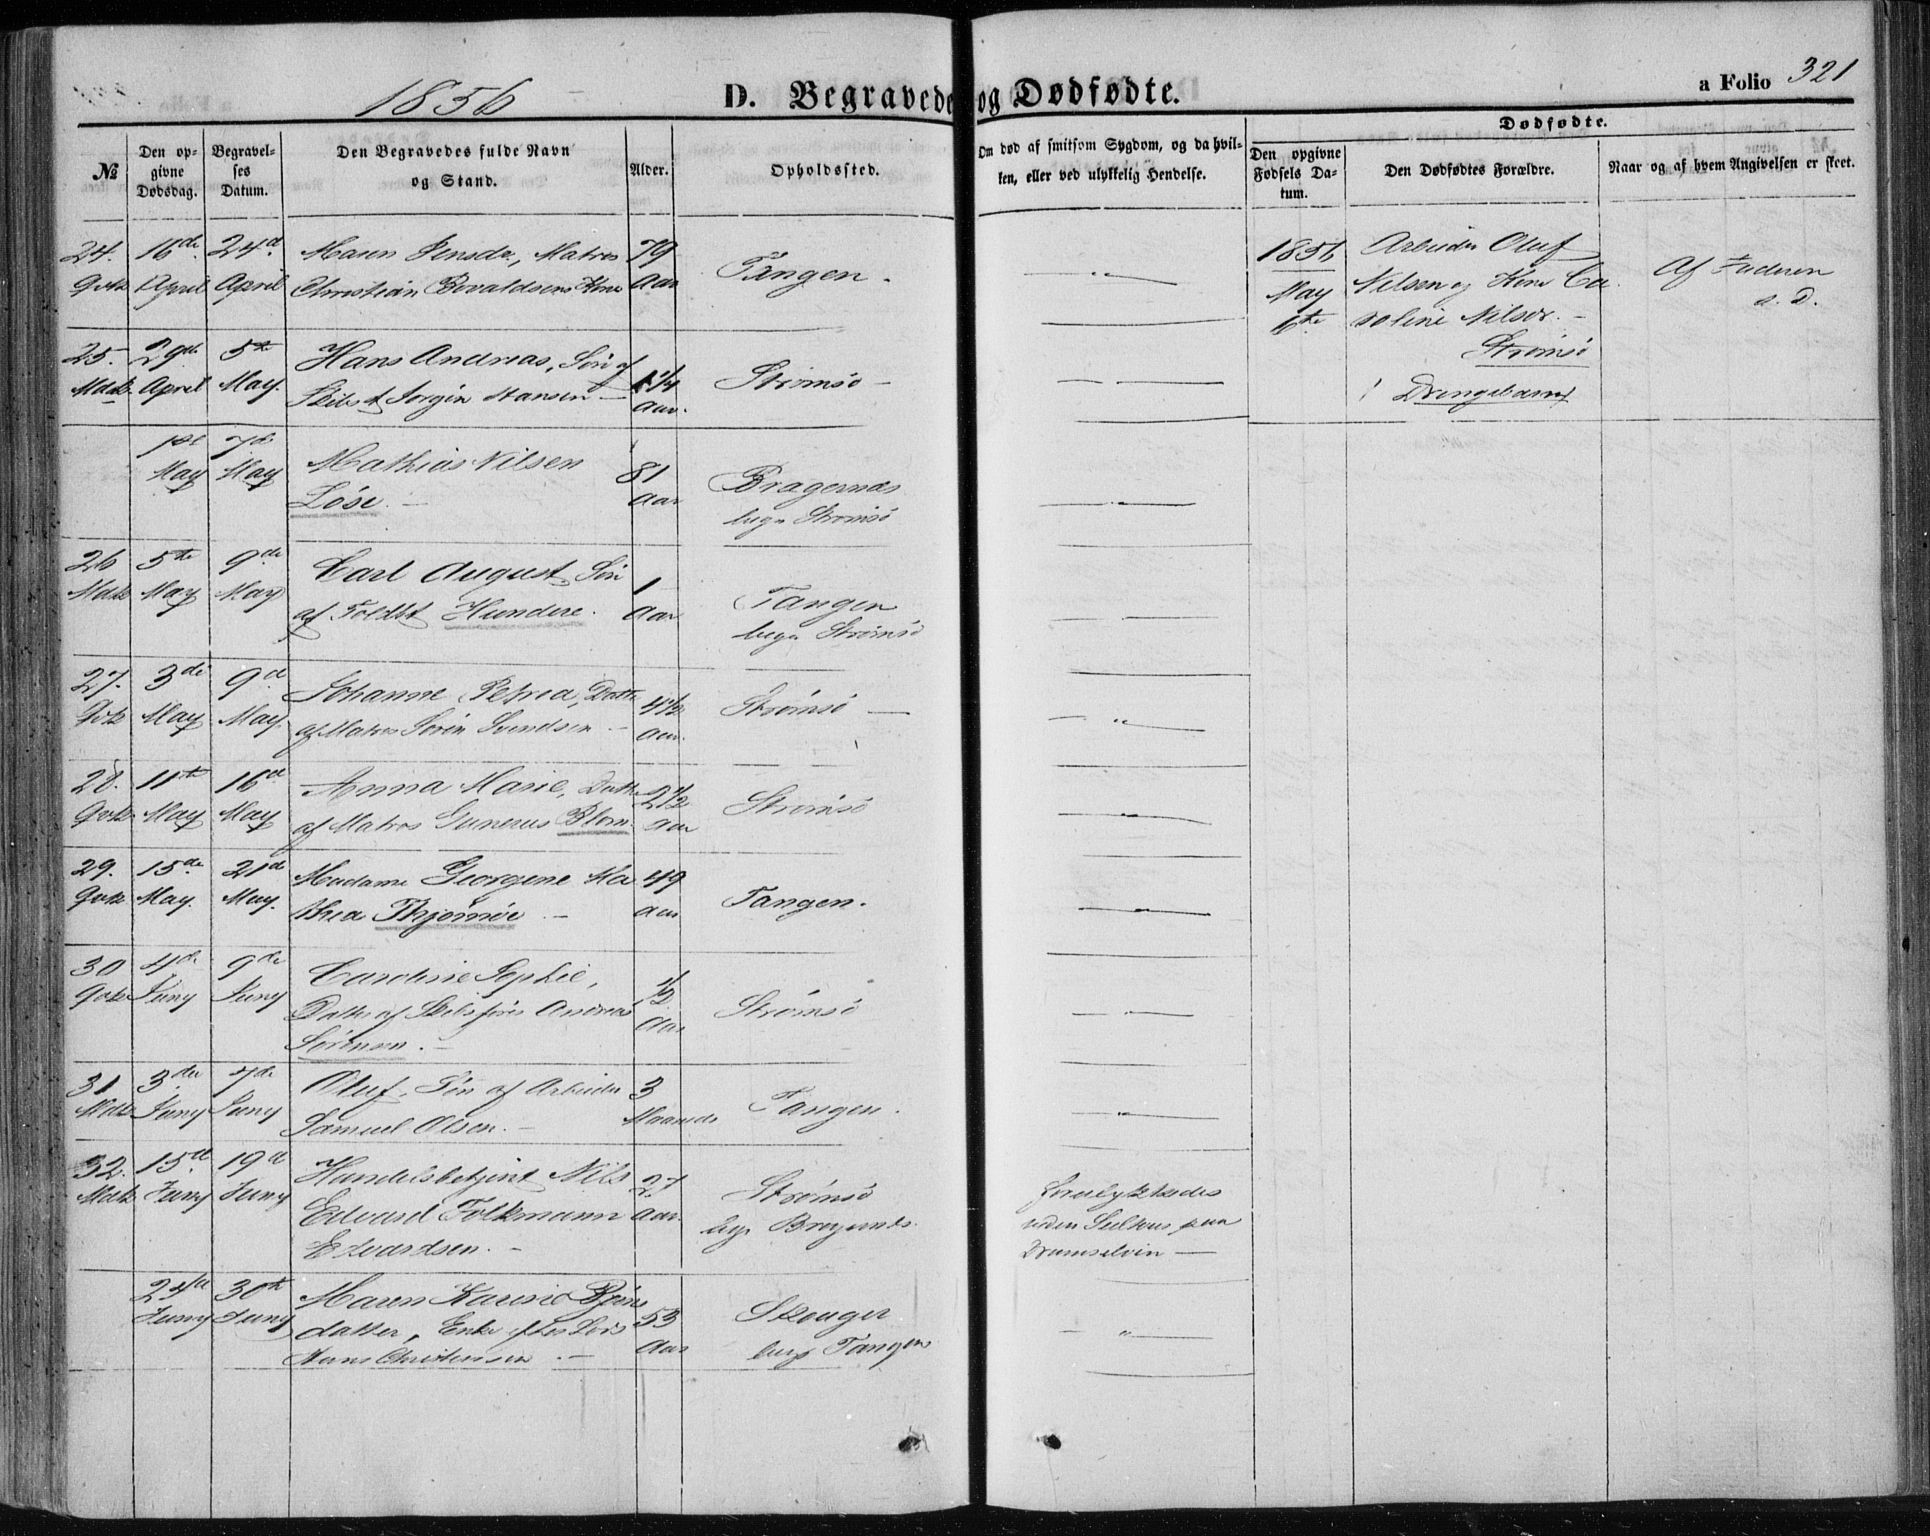 1856
D. Begravede og Dødfødte.
a Folio 321
№
Den opgivne Dødsdag.
Begravelses Datum.
Den Begravedes fulde Navn og Stand.
Alder.
Opholdssted.
Om død af smitsom Sygdom, og da hvilken, eller ved ulykkelig Hendelse.
Dødfødte.
Den opgivne Fødsels Datum.
Den Dødfødtes Forældre.
Naar og af hvem Angivelsen er skeet.
24. 16de 24d Maren Jensdr, Matros 79
Qvk April April Christian Kone Aar Tangen.
25. 29de 5te Hans Andreas, Søn af 1¼
Mdk. April May. Skibst Jørgen Hansen — Aar. Strømsø —
1ste 7de Mathias Nilsen 81 Bragernæs
May May Løse. — Aar begr Strømsø
26 5te 9de Carl August, Søn 1 Tangen
Mdk May May af Toldbt Hundere. Aar begr Strømsø
27. 3de 9d Johanne Petrea, Datter 4½ Strømsø —
Qvk May May. af Matros Søren Svendsen — Aar.
28. 11te 16d Anna Marie, Datter 2½ Strømsø
Qvk May May af Matros Gunerus Blom. Aar
29. 15de 21d Madame Georgine Ma 49
Qvk May. May. thea Thjømøe — Aar Tangen.
30 4de 9de Caroline Sophie, ½
Qvk Juny Juny Datter af Skibsfører Andreas Aar Strømsø
Sørensen. —
31 3die 7de Oluf, Søn af Arbeider 3
Mdk Juny Juny Samuel Olsen. — Maaneder Tangen.
32. 15d 19d Handelsbetjent Nils 27 Strømsø
Mdk Juny Juny Edvard Folkmann Aar. begr Bragernæs.
Edvardsen. —
forulykkedes
under Seilads paa
Dramselven —
24d 30te Maren Karine Bjørns 53 Skouger
Juny Juny datter, Enke efter Lods Aar begr Tangen
Hans Christensen. —
1856 Arbeider Oluf
May Nilsen og Kone Ca
6te roline Nilsdr. —
Strømsø
1 Drengebarn
Af Faderen
s. D.